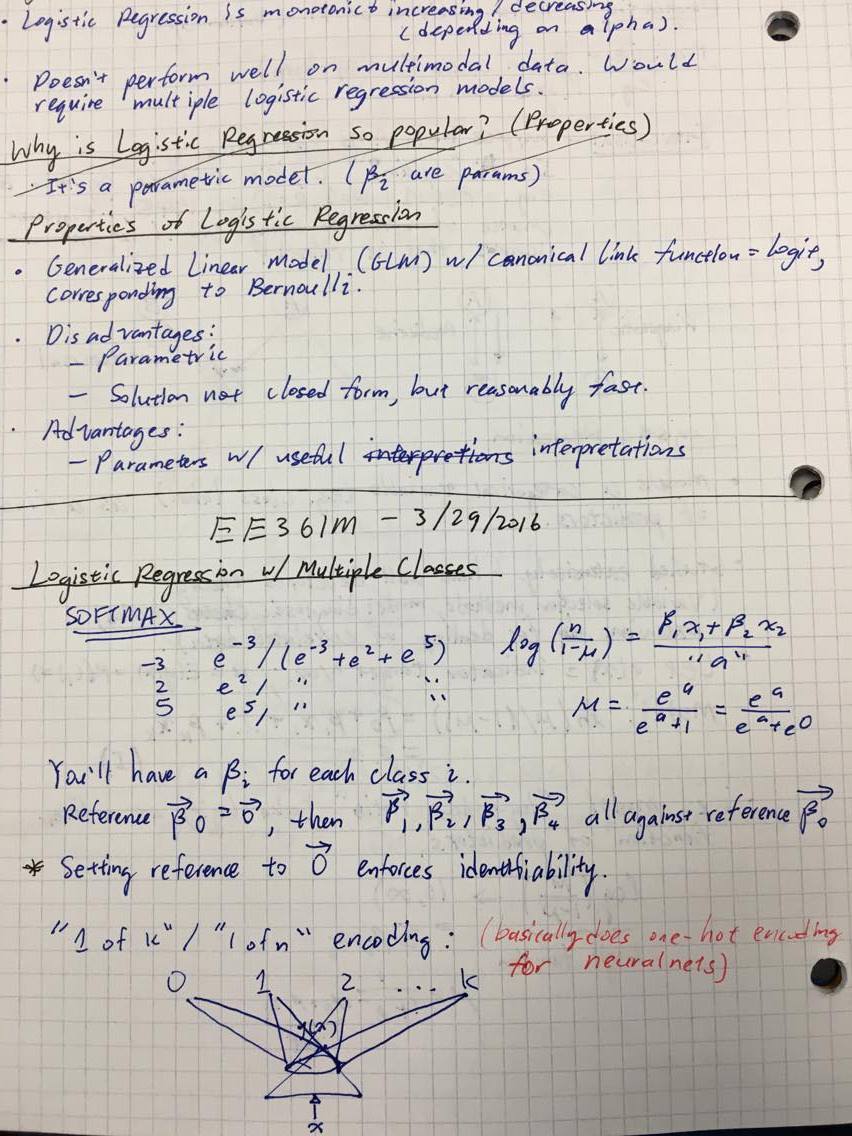 • Logistic Regression is monotonic increasing/decreasing
(depending on alpha).
• Doesn't perform well on multimodal data. Would
require multiple logistic regression models.
Why is Logistic Regression so popular? (Properties)
• It's a parametric model. (β₂ are params)
Properties of Logistic Regression
• Generalized Linear Model (GLM) w/ canonical link function = logit,
corresponding to Bernoulli.
• Disadvantages:
– Parametric
– Solution not closed form, but reasonably fast.
• Advantages:
– Parameters w/ useful interpretions interpretations
EE361M – 3/29/2016
Logistic Regression w/ Multiple Classes
SOFTMAX
-3 e^-3/(e^-3+e^2+e^5)
2 e^2/ " "
5 e^5/ " "
log(n/1-μ) = β₁x₁+β₂x₂ / "a"
μ = e^a/e^a+1 = e^a/e^a+e^0
You'll have a βᵢ for each class i.
Reference β⃗₀ = 0⃗, then β⃗₁, β⃗₂, β⃗₃, β⃗₄ all against reference β⃗₀
* Setting reference to 0⃗ enforces identifiability.
"1 of k" / "1 of n" encoding: (basically does one-hot encoding
for neural nets)
0 1 2 ... k
x